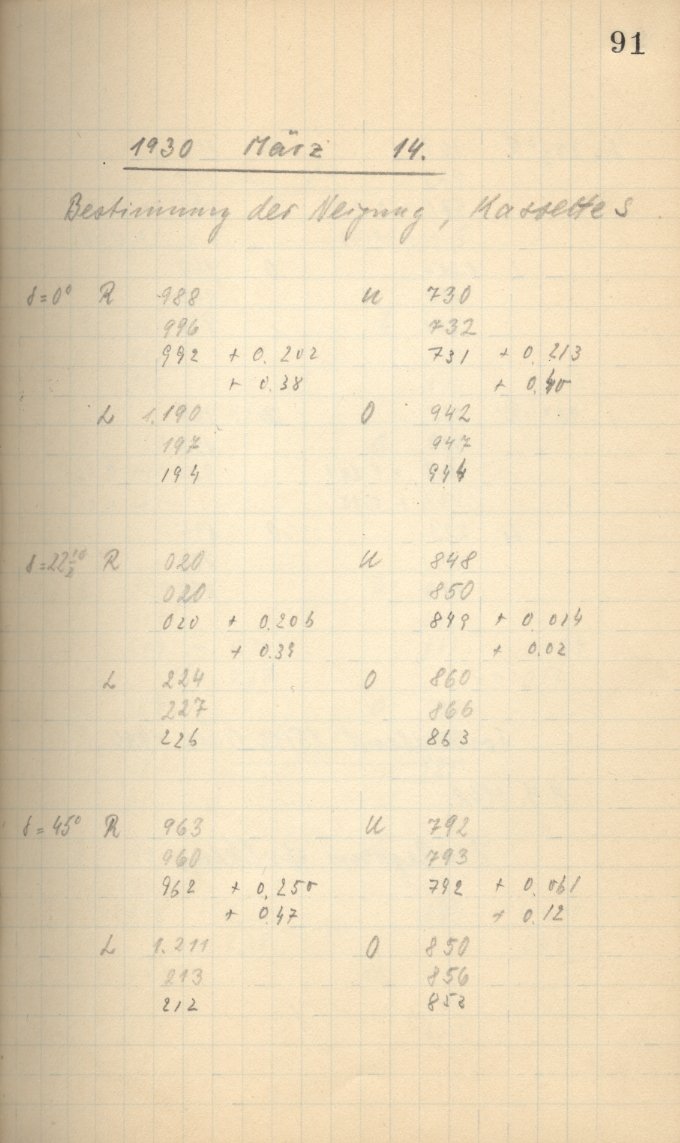 91
1930 März 14.
Bestimmung der Neigung, Kassette S
δ = 0° R 988 U 730
996 732
992 + 0.202 731 + 0.213
+ 0.38 + 0.40
L 1.190 O 942
197 947
194 944
δ = 22 1/2° R 020 U 848
020 850
020 + 0.206 849 + 0.014
+ 0.39 + 0.02
L 224 O 860
227 866
226 863
δ = 45° R 963 U 792
960 793
962 + 0.250 792 + 0.061
+ 0.47 + 0.12
L 1.211 O 850
213 856
212 853